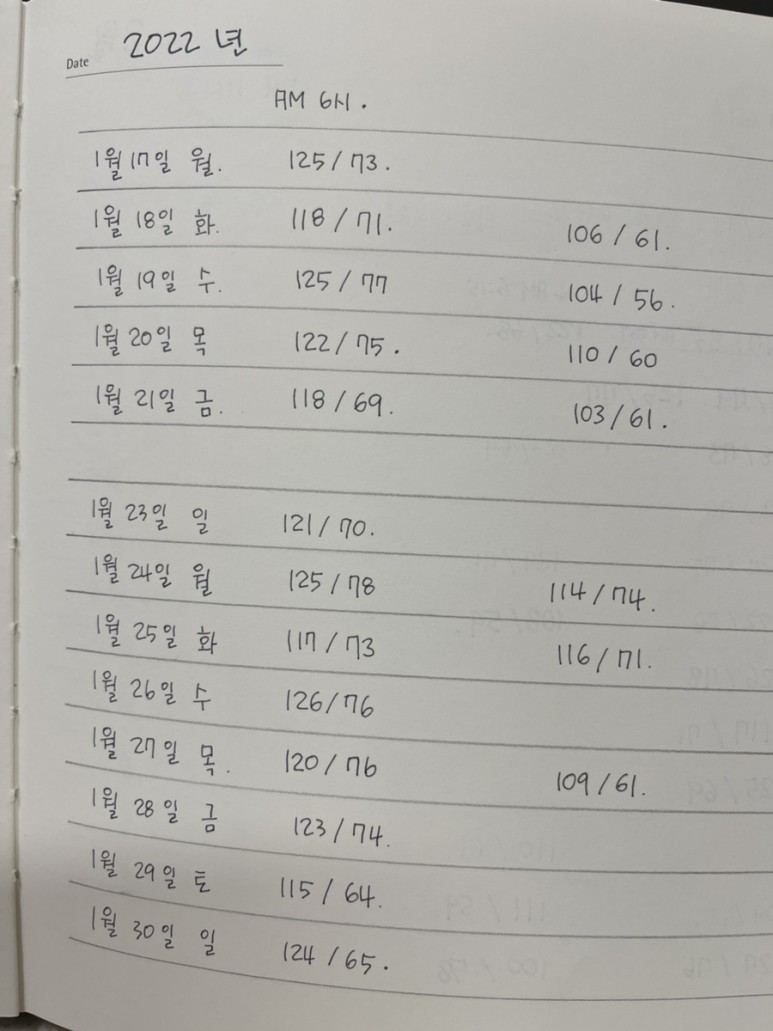 Date 2022 년
AM 6시.
1월 17일 월. 125/73.
1월 18일 화. 118/71. 106/61.
1월 19일 수. 125/77 104/56.
1월 20일 목 122/75. 110/60
1월 21일 금. 118/69. 103/61.
1월 23일 일 121/70.
1월 24일 월 125/78 114/74.
1월 25일 화 117/73 116/71.
1월 26일 수 126/76
1월 27일 목. 120/76 109/61.
1월 28일 금 123/74.
1월 29일 토 115/64.
1월 30일 일 124/65.